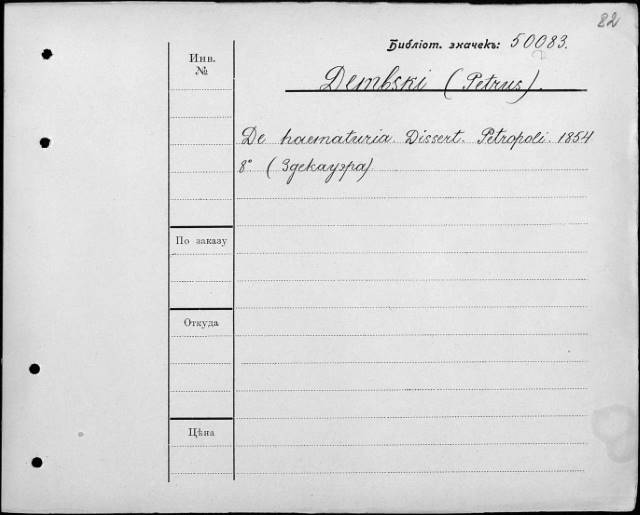 82
Библіот. значекъ: 50083.
Инв. №
Dembski (Petrus).
De haematuria. Dissert. Petropoli. 1854
8° (Здекауэра)
По заказу
Откуда
Цѣна